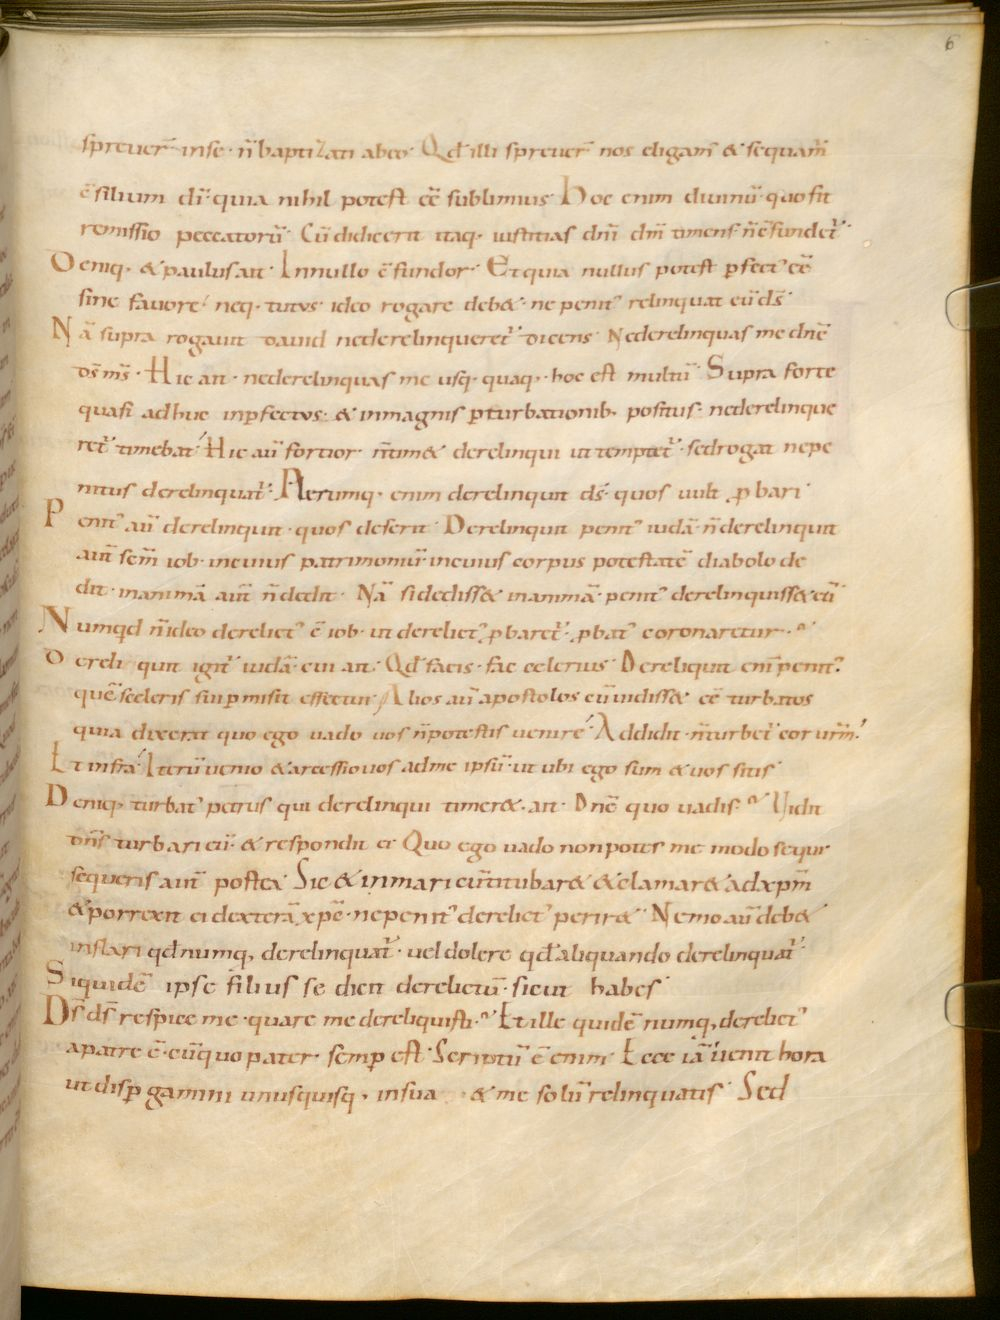 6
spreuer̄ in se · n̄ baptizati ab eo · Qd̄ illi spreuer̄ nos eligam̄ & sequam̄
c̄silium dī · quia nihil potest eē sublimius · Hoc enim diuinū · quo fit
remissio peccatorū · Cū didicerit itaq· iustitias dnī dm̄ timens n̄ c̄fundet᷑ ·
Deniq· & paulus ait · In nullo c̄fundor · Et quia nullus potest ꝑfect᷒ eē
sine fauore · neq· tutus ideo rogare deb& · ne penit᷒ relinquat eū ds̄ ·
Nā supra rogauit dauid ne derelinqueret᷑ dicens · Ne derelinquas me dnē
ds̄ ms̄ · Hic ait · ne derelinquas me usq· quaq· · hoc est multū · Supra forte
quasi adhuc inꝑfectus · & in magnis ꝑturbationib· positus · ne derelinque
ret᷑ timebat · Hic aū fortior · n̄ tim& derelinqui ut temptet᷑ · sed rogat ne pe
nitus derelinquat᷑ · Plerumq· enim derelinquit ds̄ · quos uult ꝓbari ·
Penit᷒ aū derelinquit · quos deserit · Derelinquit penit᷒ iudā · n̄ derelinquit
aut̄ sem̄ iob · in cuius patrimoniū · in cuius corpus potestatē diabolo de
dit · in animā aut̄ n̄ dedit · Nā si dediss& in animā · penit᷒ derelinquiss& eū ·
Numqd n̄ ideo derelict᷒ ē iob · ut derelict᷒ ꝓbaret᷑ · ꝓbat᷒ coronaretur ·
Dereli quit igit᷑ iudā · cui ait · Qd̄ facis · fac celerius · Dereliquit eni᷑ penit᷒
quē sceleris sui ꝑmisit effectui · Alios aū apostolos cū uidiss& eē turbatos
quia dixerat quo ego uado uos n̄ potestis uenire · Addidit · n̄ turbet᷑ cor urm̄ ·
Et infra · Iterū uenio & arcessio uos ad me ipsū · ut ubi ego sum & uos sitis ·
Deniq· turbat᷒ petrus qui derelinqui timer& · ait · Dnē quo uadis · Vidit
dns̄ turbari eū · & respondit ei Quo ego uado non potes me modo sequi
sequeris aut̄ postea · Sic & in mari cū titubar& & clamar& ad xpm̄
& porrexit ei dexterā xpē · ne penit᷒ derelict᷒ perir& · Nemo aū deb&
inflari qd̄ numq, derelinquat᷑ · uel dolere qd̄ aliquando derelinquat᷑ ·
Siquidē ipse filius se dicit derelictū · sicut habes ·
Ds̄ ds̄ respice me · quare me dereliquisti · Et ille quidē numq, derelict᷒
a patre ē · cū quo pater · semꝑ est · Scriptū ē enim · Ecce iā uenit hora
ut dispgamini unusquisq· in sua · & me solū relinquatis · Sed